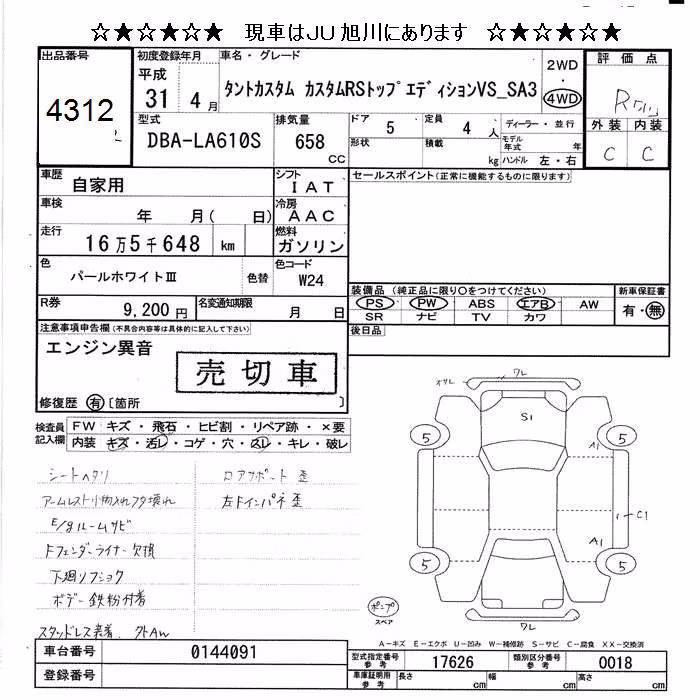 ☆★☆★☆★ 現車はJU旭川にあります ☆★☆★☆★
出品番号
4312
初度登録年月
平成
31 4 月
車名・グレード
タントカスタム カスタムRSトップエディションVS_SA3
2WD
・
4WD
評価点
R
外装 内装
C C
型式
DBA-LA610S
排気量
658
CC
ドア 5
定員 4 人
形状
積載 kg
ディーラー・並行
モデル年式 年
ハンドル 左・右
車歴
自家用
シフト
IAT
車検
年 月( 日)
冷房
AAC
走行
16万5千648 km
燃料
ガソリン
色
パールホワイトⅢ
色替
色コード
W24
R券
9,200円
名変通知期限
月 日
セールスポイント(正常に機能するものに限ります)
装備品(純正品に限り○をつけてください)
PS PW ABS エアB AW
SR ナビ TV カワ
新車保証書
有・無
後日品
注意事項申告欄(不具合内容等は具体的に記入して下さい)
エンジン異音
売切車
修復歴 有 [箇所 ]
検査員
記入欄
FW キズ・飛石・ヒビ割・リペア跡・×要
内装 キズ・汚レ・コゲ・穴・スレ・キレ・破レ
シートヘタリ
アームレスト小物入れフタ壊れ
E/gルームサビ
Fフェンダーライナー欠損
下廻リフショク
ボデー鉄粉付着
スタッドレス装着 外AW
コアサポート歪
左Fインパネ歪
ワレ
S1
5
5
A1
C1
A1
5
5
ワレ
スペア
A-キズ E-エクボ U-凹み W-補修跡 S-サビ C-腐食 XX-交換済
車台番号
0144091
登録番号
型式指定番号
参考
17626
類別区分番号
参考
0018
車庫証明用
参考
長さ cm
幅 cm
高さ cm